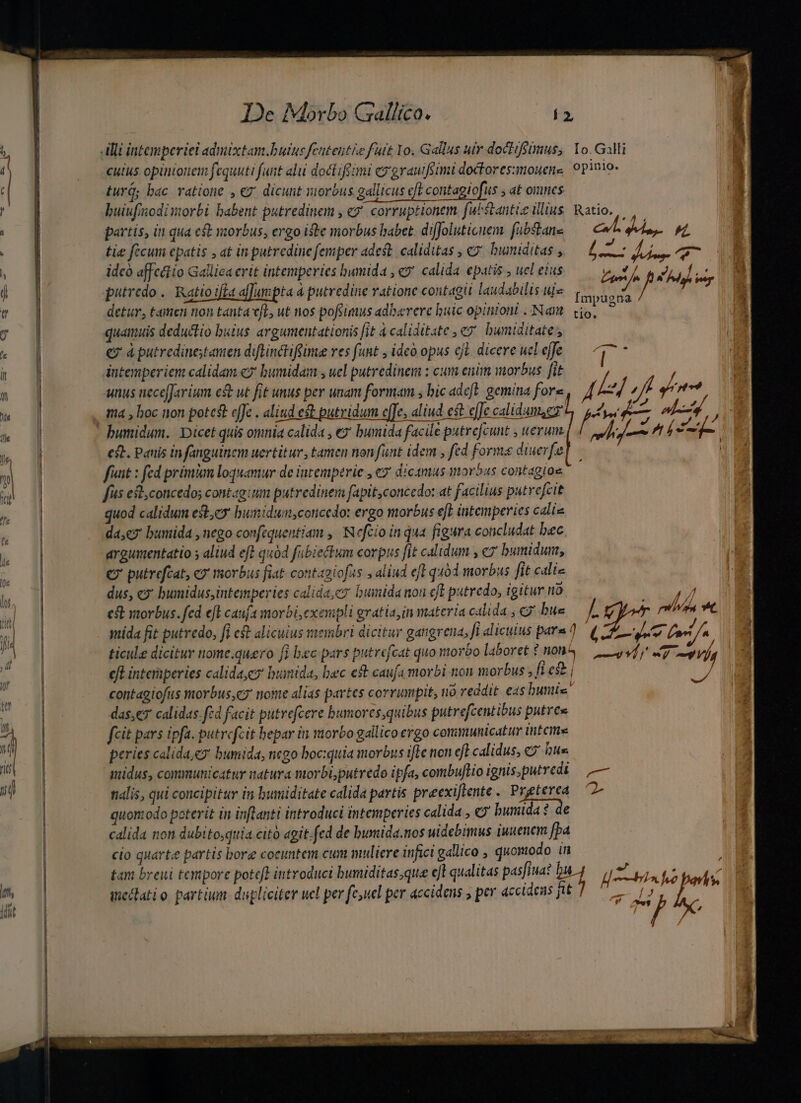 De Morbo Gallico. 12
illi intemperiei admixtam.huius sententiæ fuit Io. Gallus uir doctissimus, Io. Galli
cuius opinionem sequuti sunt alii doctissimi & grauissimi doctores:mouen= opinio.
turq; hac ratione , & dicunt morbus gallicus est contagiosus , at omnes
huiusmodi morbi habent putredinem , & corruptionem substantiæ illius Ratio.
partis, in qua est morbus, ergo iste morbus habet dissolutionem substan=
tiæ secum epatis , at in putredine semper adest caliditas , & humiditas ,
ideò affectio Gallica erit intemperies humida , & calida epatis , uel eius
putredo . Ratio ista assumpta à putredine ratione contagii laudabilis ui= Impugna
detur, tamen non tanta est, ut nos possimus adhærere huic opinioni . Nam tio.
quamuis deductio huius argumentationis sit à caliditate , & humiditate,
& à putredine;tamen distinctissimæ res sunt , ideò opus est dicere uel esse
intemperiem calidam & humidam , uel putredinem : cum enim morbus sit
unus necessarium est ut sit unus per unam formam , hic adest gemina for=
ma , hoc non potest esse . aliud est putridum esse, aliud est esse calidum,&
humidum. Dicet quis omnia calida , & humida facile putrescunt , uerum
est. Panis in sanguinem uertitur, tamen non sunt idem , sed formæ diuersæ
sunt : sed primùm loquamur de intemperie , & dicamus morbus contagio=
sus est,concedo; contagium putredinem sapit,concedo: at facilius putrescit
quod calidum est,& humidum,concedo: ergo morbus est intemperies cali=
da,& humida , nego consequentiam , Nescio in qua figura concludat hæc
argumentatio ; aliud est quòd subiectum corpus sit calidum , & humidum,
& putrescat, & morbus fiat contagiosus , aliud est quòd morbus sit cali=
dus, & humidus,intemperies calida,& humida non est putredo, igitur nō
est morbus.sed est causa morbi,exempli gratia,in materia calida , & hu=
mida fit putredo, si est alicuius membri dicitur gangrena,si alicuius par=
ticulæ dicitur nome.quero si hæc pars putrescat quo morbo laboret ? non
est intemperies calida,& humida, hæc est causa morbi non morbus , si est
contagiosus morbus,& nome alias partes corrumpit, nō reddit eas humi=
das,& calidas.sed facit putrescere humores,quibus putrescentibus putre=
scit pars ipsa. putrescit hepar in morbo gallico ergo communicatur intem=
peries calida,& humida, nego hoc:quia morbus iste non est calidus, & hu=
midus, communicatur natura morbi,putredo ipsa, combustio ignis,putredi
nalis, qui concipitur in humiditate calida partis præexistente . Præterea
quomodo poterit in instanti introduci intemperies calida , & humida? de
calida non dubito,quia citò agit.sed de humida.nos uidebimus iuuenem spa
cio quartæ partis horæ coeuntem cum muliere infici gallico , quomodo in
tam breui tempore potest introduci humiditas,quæ est qualitas passiua? hu
mectatio partium dupliciter uel per se,uel per accidens , per accidens fit